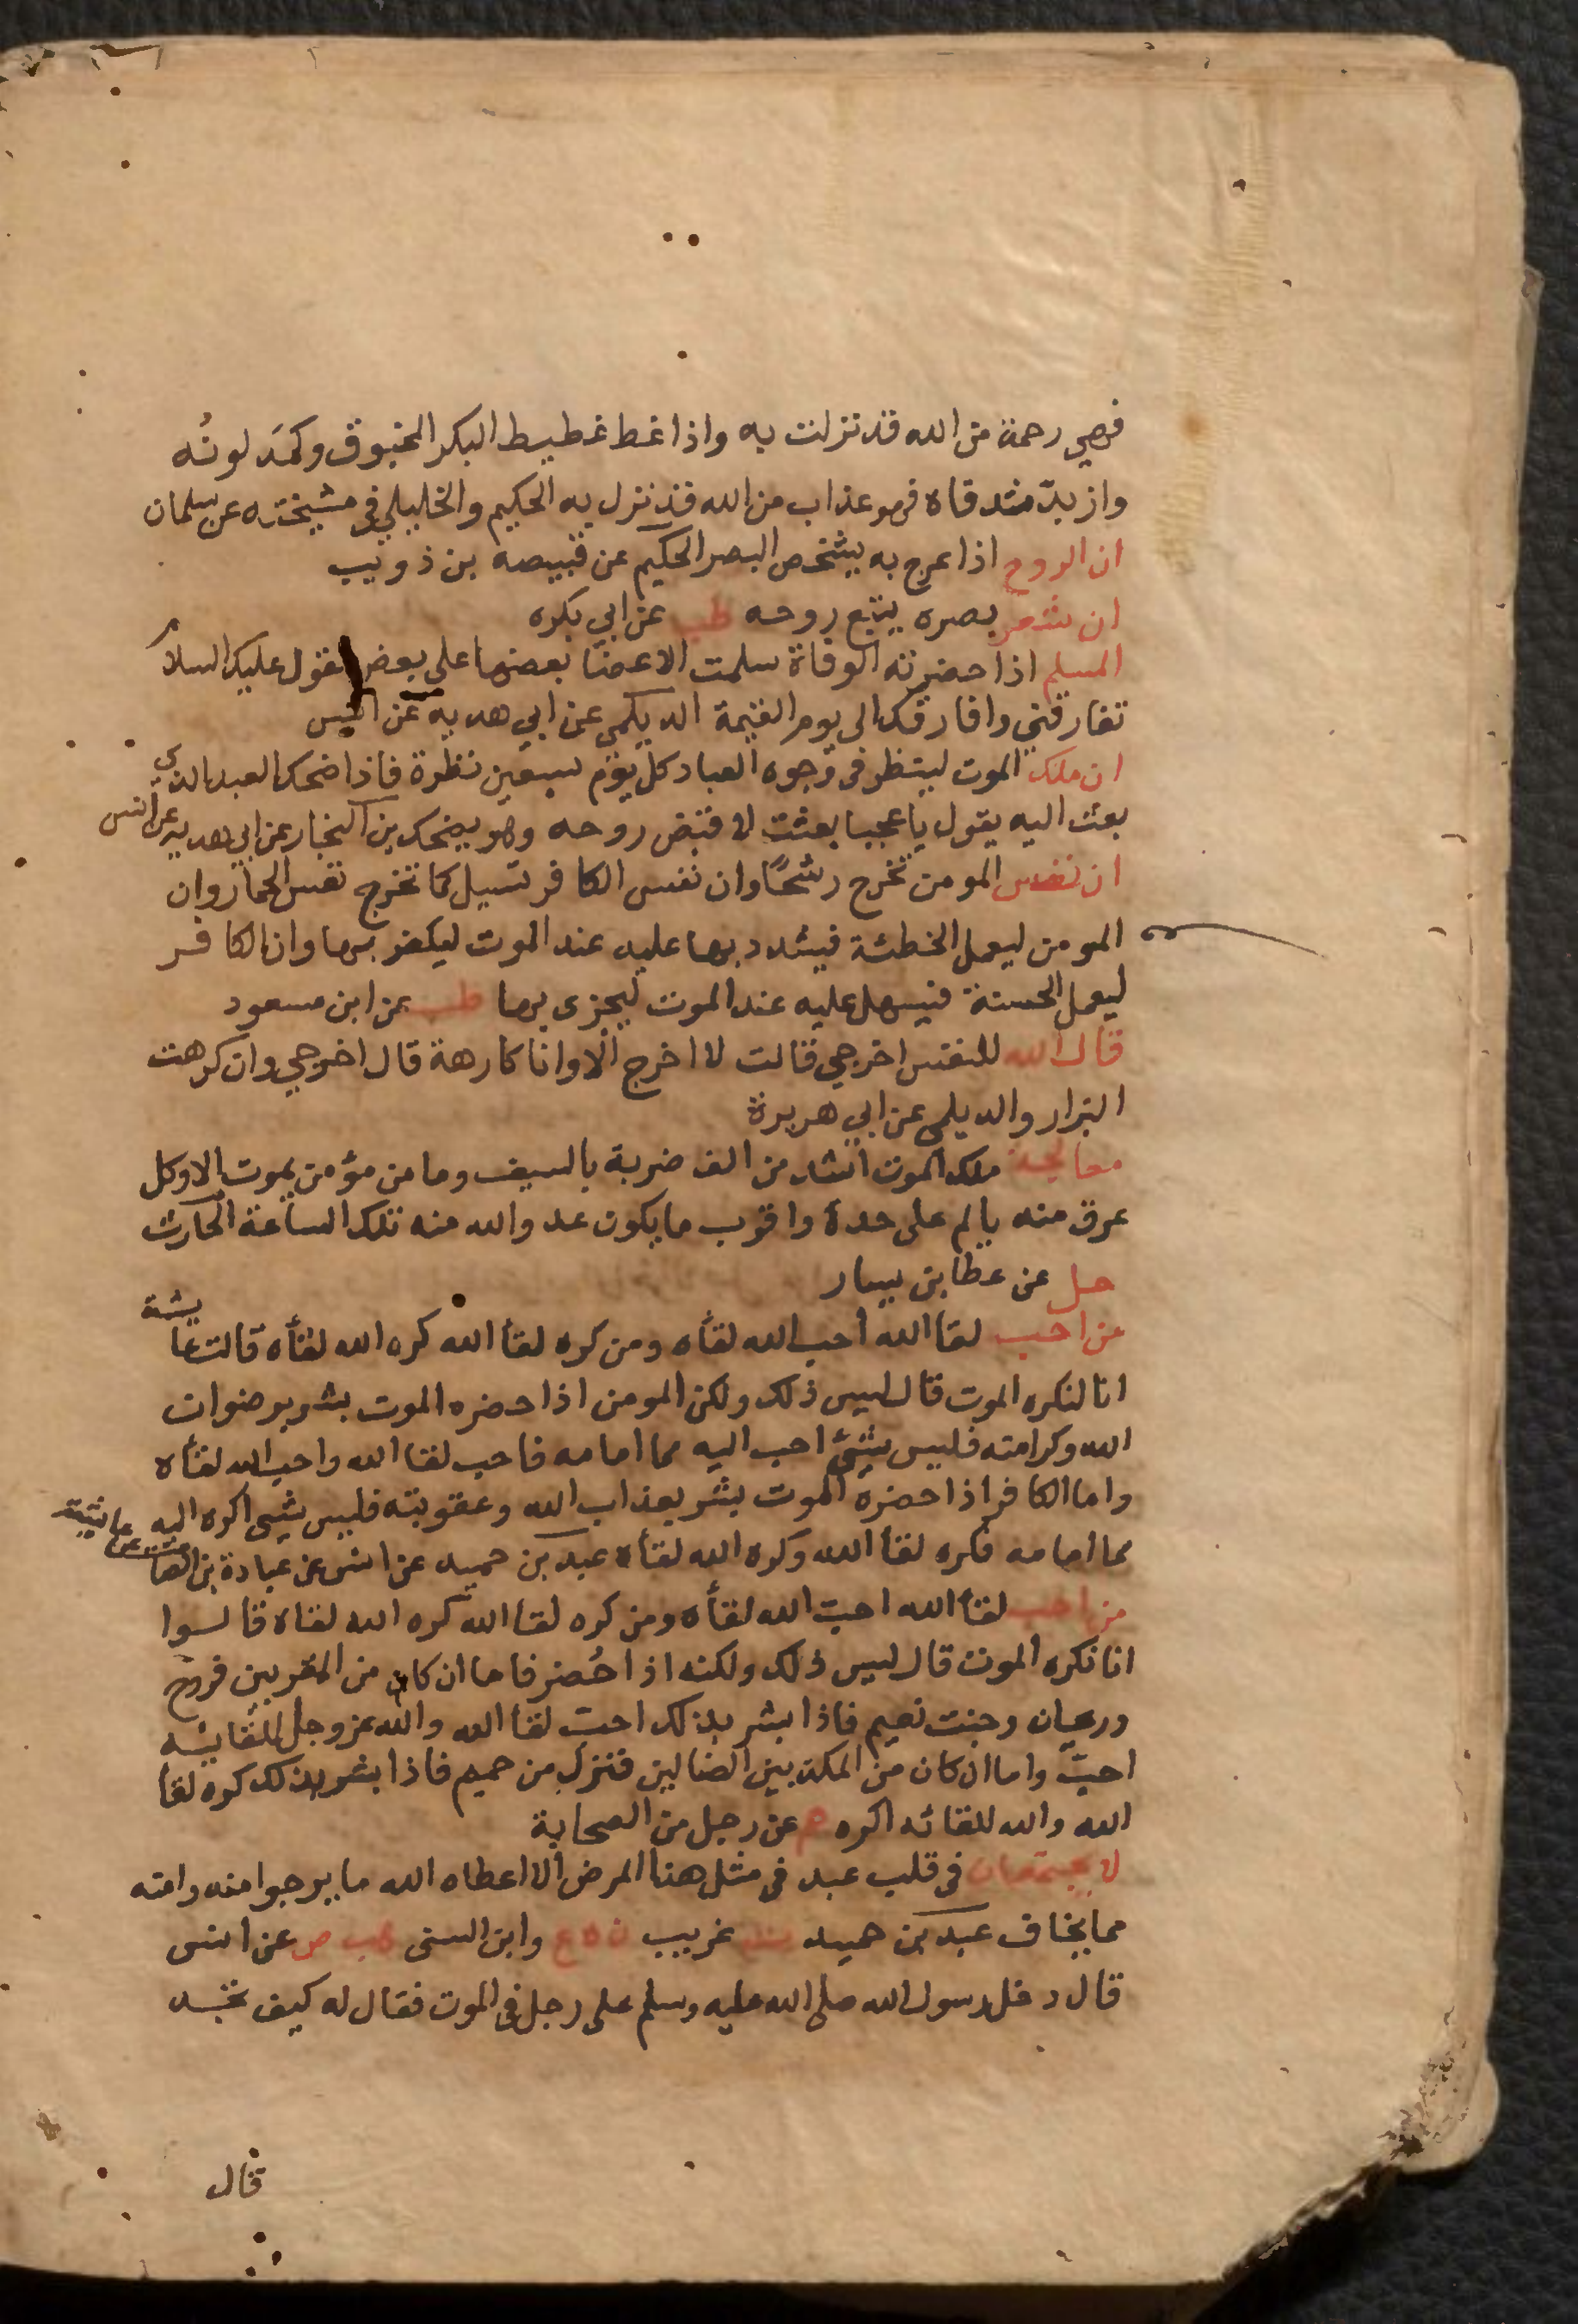 فهي رحمة من الله قد نزلت به واذا غط غطيط البكر المخنوق وكمَد لونُه
وازبدّ شدقاه فهو عذاب من الله قد نزل به الحكيم والخليلي في مشيخته عن سلمان
ان الروح اذا عرج به يشخص البصر الحكيم عن قبيصه بن ذويب
ان بصره يتبع روحه طب عن ابي بكره
المسلم اذا حضرته الوفاة سلمت الاعضا بعضها على بعض تقول عليك السلام
تفارقني وافارقك الى يوم القيمة الديلمي عن ابي هدبه عن انس
ان ملك الموت لينظر في وجوه العباد كل يوم سبعين نظرة فاذا ضحك العبد الذي
بعث اليه يقول يا عجبا بعثت لاقبض روحه وهو يضحك بن النجار عن ابي هدبه عن انس
ان نفس المومن تخرج رشحًا وان نفس الكافر تسيل كما تخرج نفس الحمار وان
المومن ليعمل الخطئة فيشدد بها عليه عند الموت ليكفر بها وان الكافر
ليعمل الحسنة فيسهل عليه عند الموت ليجزى بها طب عن ابن مسعود
قال الله للنفس اخرجي قالت لا اخرج الا وانا كارهة قال اخرجي وان كرهت
البزار والديلمي عن ابي هريرة
معالجة ملك الموت اشد من الف ضربة بالسيف وما من مؤمن يموت الا وكل
عرق منه يالم على حدة واقرب ما يكون عدو الله منه تلك الساعة الحارث
حل عن عطا بن يسار
من احب لقا الله احب الله لقأه ومن كره لقأ الله كره الله لقأه قالت عايشة
انا لنكره الموت قال ليس ذلك ولكن المومن اذا حضره الموت بشر برضوان
الله وكرامته فليس شئ احب اليه مما امامه فاحب لقا الله واحب الله لقأه
واما الكافر اذا حضره الموت بشر بعذاب الله وعقوبته فليس شي اكره اليه
مما امامه فكره لقأ الله وكره الله لقأه عبد بن حميد عن انس عن عبادة بن الصامت عن عائشة
من احب لقأ الله احبّ الله لقأه ومن كره لقا الله كره الله لقاه قالوا
انا نكره الموت قال ليس ذلك ولكنه اذا حُضر فاما ان كان من المقربين فروح
وريحان وجنت نعيم فاذا بشر بذلك احبّ لقا الله والله عز وجل للقائه
احبّ واما ان كان من المكذبين الضالين فنزل من حميم فاذا بشر بذلك كره لقا
الله والله للقائه اكره حم عن رجل من الصحابة
لا يجتمعان في قلب عبد في مثل هذا المرض الا اعطاه الله ما يرجوا منه وامنه
مما يخاف عبد بن حميد ت غريب ن ه ع وابن السنى هب ص عن انس
قال دخل رسول الله صلى الله عليه وسلم على رجل في الموت فقال له كيف تجد
قال